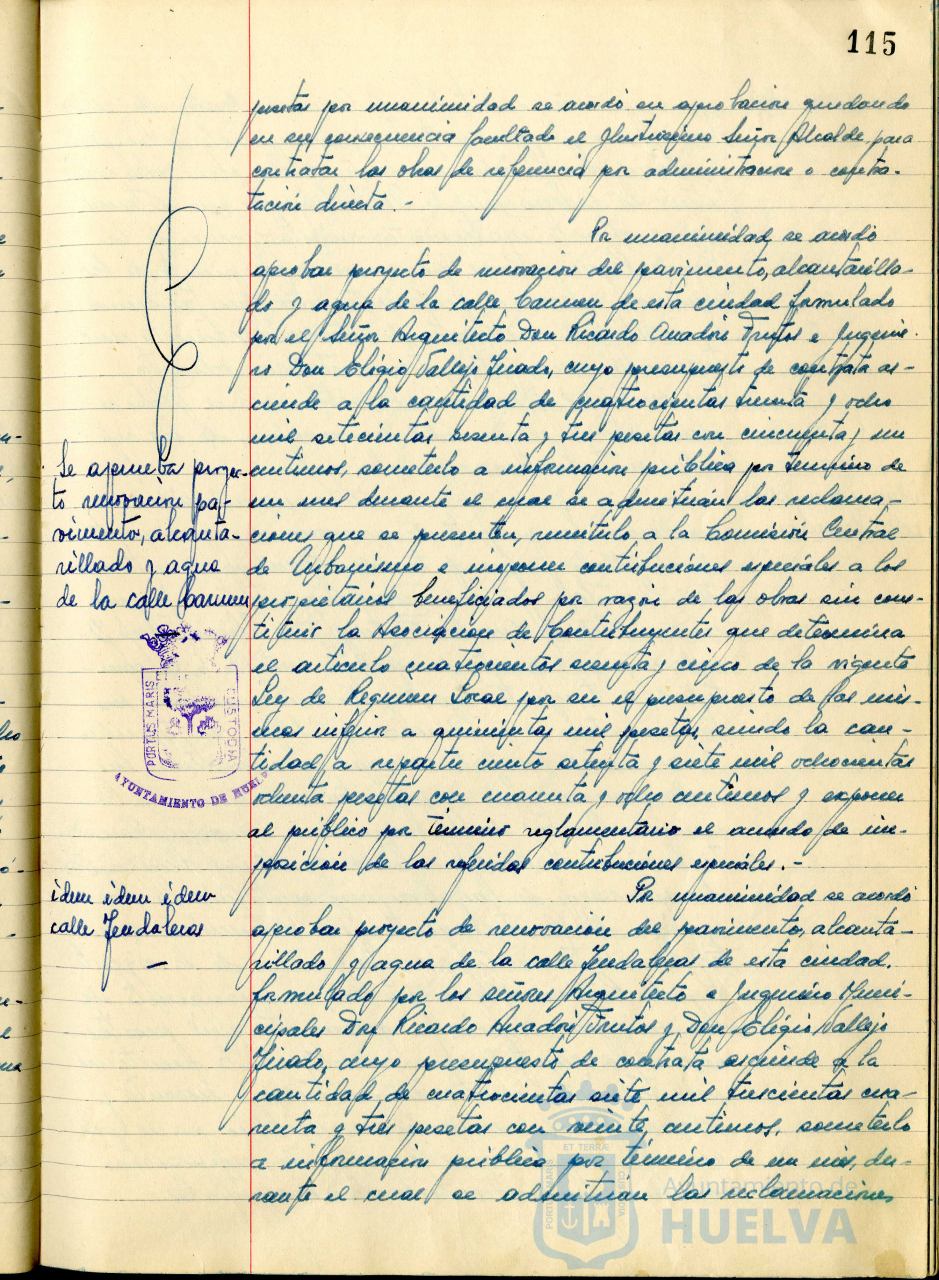 115
puestas por unanimidad se acordó su aprobacion quedando
en su consecuencia facultado el Ilustrisimo Señor Alcalde para
contratar las obras de referencia por administracion o contra-
tación directa.-
Por unanimidad se acordó
aprobar proyecto de renovacion del pavimento, alcantarilla-
do y agua de la calle Carmen de esta ciudad formulado
por el Señor Arquitecto Don Ricardo Anadón Frutos e Ingenie-
ro Don Eligio Vallejo Tirado, cuyo presupuesto de contrata as-
ciende a la cantidad de cuatrocientas treinta y ocho
mil setecientas sesenta y tres pesetas con cincuenta y un
centimos, someterlo a informacion pública por termino de
un mes durante el cual se admitirán las reclama-
ciones que se presenten, remitirlo a la Comisión Central
de Urbanismo e imponer contribuciones especiales a los
propietarios beneficiados por razón de las obras sin cons-
tituir la Asociacion de Contribuyentes que determina
el artículo cuatrocientos sesenta y cinco de la vigente
Ley de Regimen Local por ser el presupuesto de las mis-
mas inferior a quinientas mil pesetas, siendo la can-
tidad a repartir ciento setenta y siete mil ochocientas
ochenta pesetas con cuarenta y ocho centimos y exponer
al público por término reglamentário el acuerdo de im-
posición de las referidas contribuciones especiales.-
Por unanimidad se acordó
aprobar proyecto de renovación del pavimento, alcanta-
rillado y agua de la calle Tendaleras de esta ciudad.
formulado por los señores Arquitecto e Ingeniero Muni-
cipales Don Ricardo Anadón Frutos y Don Eligio Vallejo
Tirado, cuyo presupuesto de contrata asciende a la
cantidad de cuatrocientas siete mil trescientas cua-
renta y tres pesetas con veinte centimos, someterlo
a informacion pública por término de un mes, du-
rante el cual se admitirán las reclamaciones
Se aprueba proyec-
to renovacion pa-
vimento, alcanta-
rillado y agua
de la calle Carmen
PORTUS MARIS
CUSTODIA
AYUNTAMIENTO DE HUELVA
idem idem idem
calle Tendaleras
ET TERRÆ
PORTUS MARIS
CUSTODIA
Ayuntamiento de
HUELVA